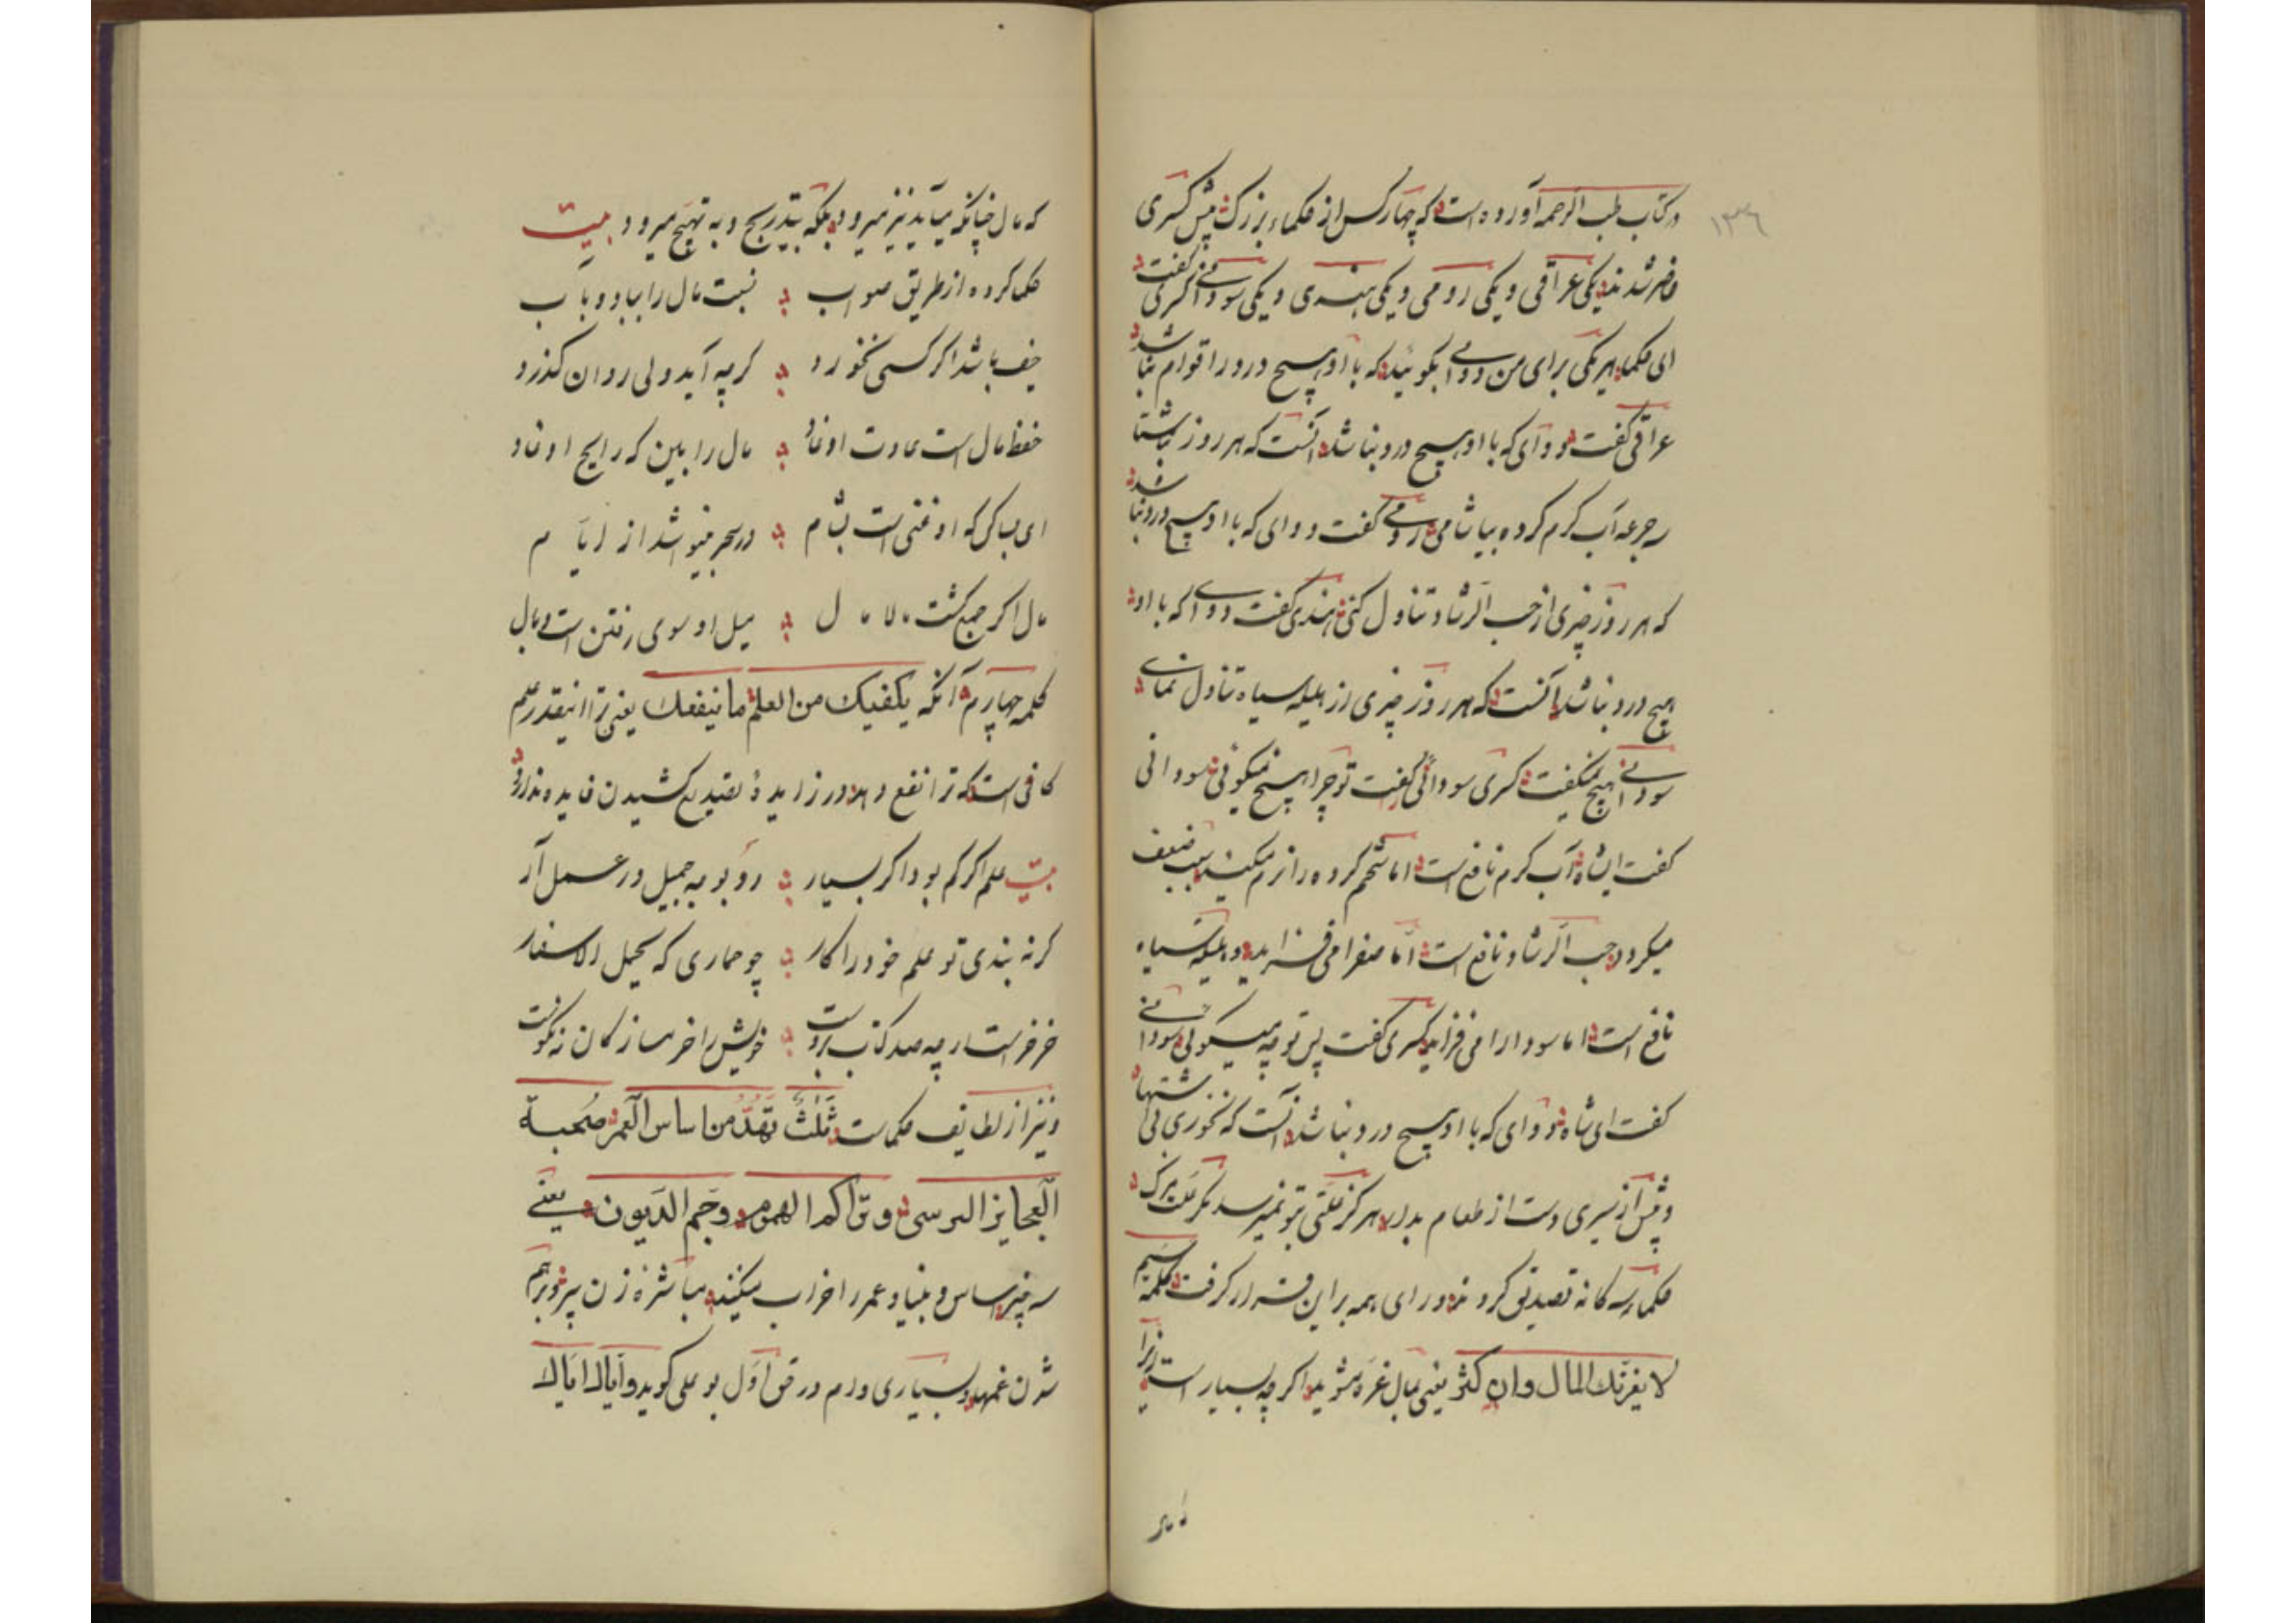 ۱۳۶
در کتاب طب الرحمه آورده است که چهار کس از حکماء بزرک پیش کسری
حاضر شدند یکی عراقی و یکی رومی و یکی هندی و یکی سودانی کسری گفت
ای حکما هر یکی برای من دوائی بکوئید که با او هیچ درد را قوام نباشد
عراقی گفت دوائی که با او هیچ درد نباشد آنست که هر روز ناشتا
سه جرعه آب کرم کرده بیاشامی رومی گفت دوائی که با او هیچ درد نباشد
که هر روز چیزی از حب الرشاد تناول کنی هندی گفت دوائی که با او
هیچ درد نباشد آنست که هر روز چیزی از هلیله سیاه تناول نمائی
سودانی هیچ نمیگفت کسری سودانی را گفت تو چرا هیچ نمیکوئی سودانی
گفت ای شاه آب کرم نافع است اما شحم کرده را نرم میکند سبب ضعف
میکردد حب الرشاد نافع است اما صفرا می افزاید و هلیله سیاه
نافع است اما سودا را می افزاید کسری گفت پس تو چه میکوئی سودانی
گفت ای شاه دوائی که با او هیچ درد نباشد آنست که نخوری بی اشتها
و پیش از سیری دست از طعام بدار هرکز علتی بتو نمیرسد مکر علت مرک
حکماء سه کانه تصدیق کردند و رای همه بر این قرار کرفت کلمهٔ سیم
لا یغرنک المال وان کثر یعنی بمال غره مشوید اکرچه بسیار است زیرا
که مال
که مال چنانکه میآید نیز میرود بلکه بتدریج و به تهیج میرود بیت
حکما کرده از طریق صواب ؞ نسبت مال را بباد و بآب
حیف باشد اکر کسی نخورد ؞ کرچه آید ولی روان کذرد
حفظ مال است عادت اوغاد ؞ مال را بین که رایح او غاد
ای بسا کس که او غنی است بشام ؞ در سحر میشود از ایام
مال اکر جمع کشت مالامال ؞ میل او سوی رفتن است و مال
کلمه چهارم آنکه یکفیک من العلم ما ینفعک یعنی ترا اینقدر علم
کافی است که ترا نفع دهد در زایدهٔ تصدیع کشیدن فایده ندارد
بیت علم اکر کم بود اکر بسیار ؞ رو بوجه جمیل در عمل آر
کر نه بندی تو علم خود را کار ؞ چو حماری که یحمل الاسفار
خر خر است ار چه صد کتاب بروست ؞ خویش را خر مساز کان نه نکوست
و نیز از لطایف حکمات ثلث تهد من اساس العمر صحبة
العجایز البرسی وتراکم الهموم وجم الدیون یعنی
سه چیز اساس و بنیاد عمر را خراب میکنند مباشرهٔ زن پیر و بر هم
شدن غمها و بسیاری ورم ورق اول بو علی کوید وایاک ایاک